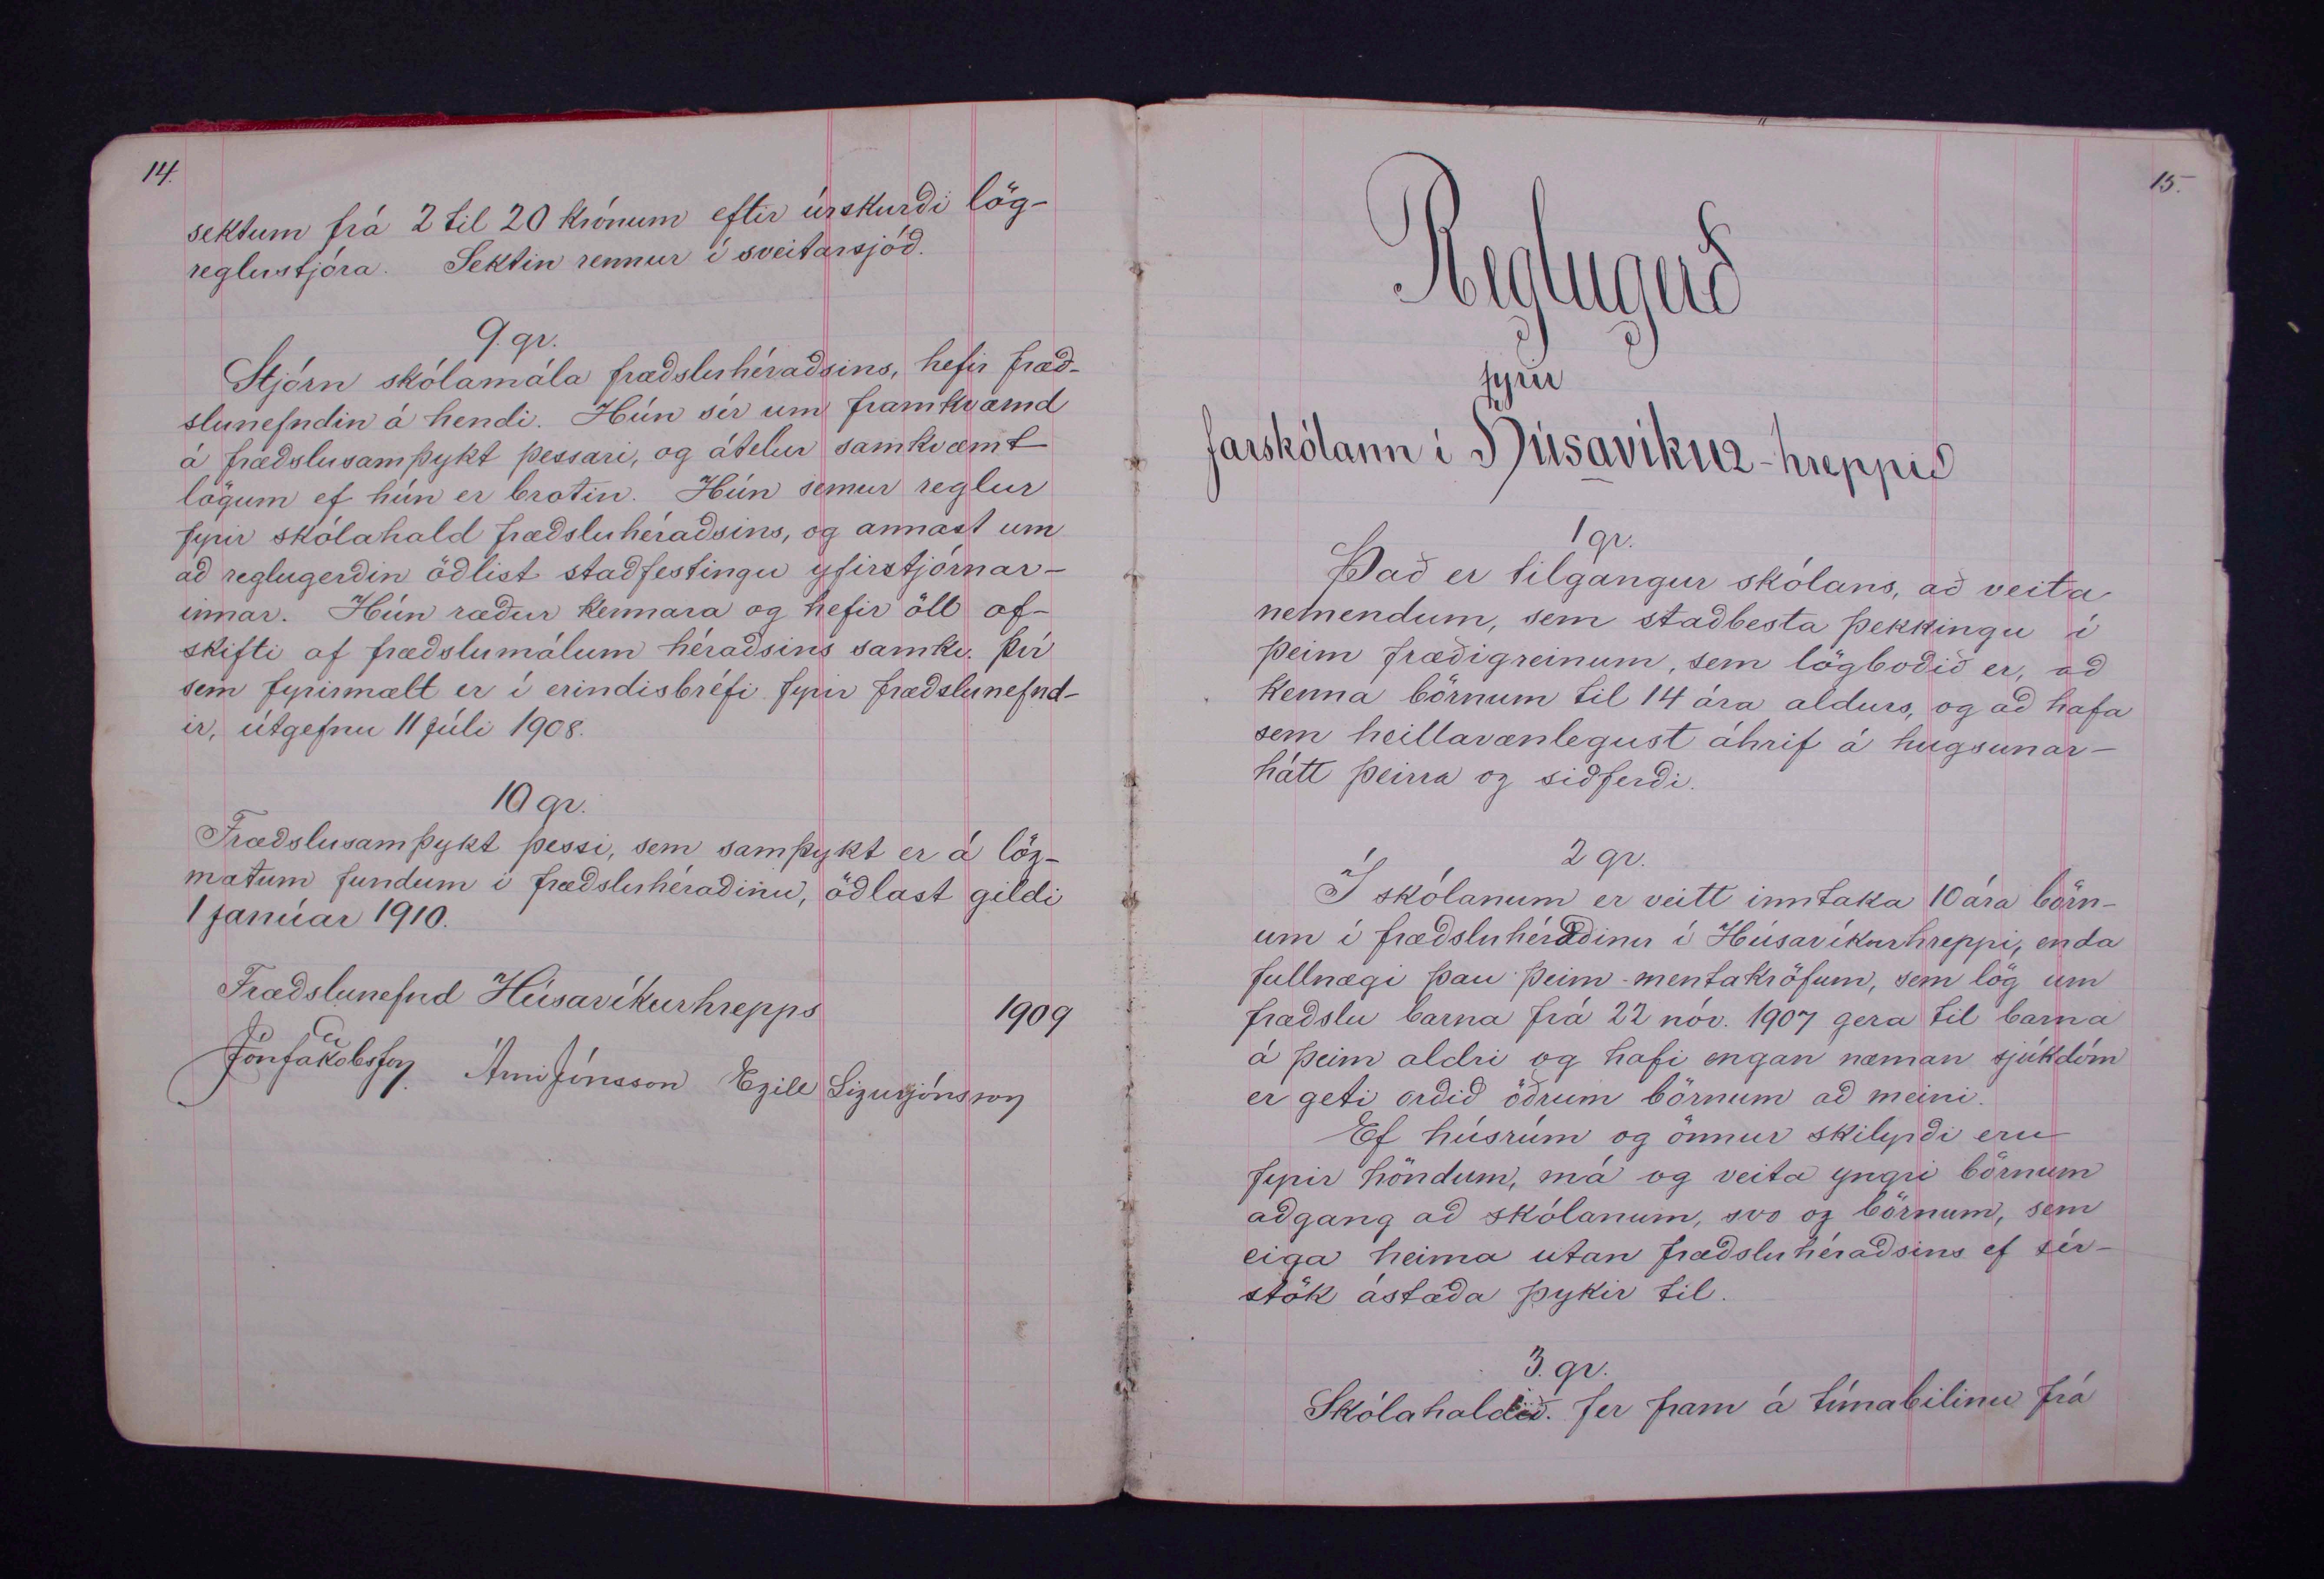 14.
sektum frá 2 til 20 krónum eftir úrskurði lög-
reglustjóra. Sektin rennur í sveitarsjóð.
9. gr.
Stjórn skólamála fræðsluhéraðsins, hefir fræð-
slunefndin á hendi. Hún sér um framkvæmd
á fræðslusamþykt þessari, og átelur samkvæmt
lögum ef hún er brotin. Hún semur reglur
fyrir skólahald fræðsluhéraðsins, og annast um
að reglugerðin öðlist staðfestingu yfirstjórnar-
innar. Hún ræður kennara og hefir öll af-
skifti af fræðslumálum héraðsins samkv. því
sem fyrirmælt er í erindisbréfi fyrir fræðslunefnd-
ir, útgefnu 11 júli 1908.
10 gr.
Fræðslusamþykt þessi, sem samþykt er á lög-
mætum fundum i fræðsluhéraðinu, öðlast gildi
1 janúar 1910.
Fræðslunefnd Húsavíkurhrepps 1909
Jón Jakobsson. Árni Jónsson Egill Sigurjónsson
15.
Reglugerð
fyrir
farskólann í Húsavíkur-hreppi
1 gr.
Það er tilgangur skólans, að veita
nemendum, sem staðbesta þekkingu í
þeim fræðigreinum, sem lögboðið er, að
kenna börnum til 14 ára aldurs, og að hafa
sem heillavænlegust áhrif á hugsunar-
hátt þeirra og siðferði.
2 gr.
Í skólanum er veitt inntaka 10 ára börn-
um í fræðsluhéraðinu í Húsavíkurhreppi, enda
fullnægi þau þeim mentakröfum, sem lög um
fræðslu barna frá 22 nóv. 1907 gera til barna
á þeim aldri og hafi engan næman sjúkdóm
er geti orðið öðrum börnum að meini.
Ef húsrúm og önnur skilyrði eru
fyrir höndum, má og veita yngri börnum
aðgang að skólanum, svo og börnum, sem
eiga heima utan fræðsluhéraðsins ef sér-
stök ástæða þykir til.
3. gr.
Skólahaldið. fer fram á tímabilinu frá